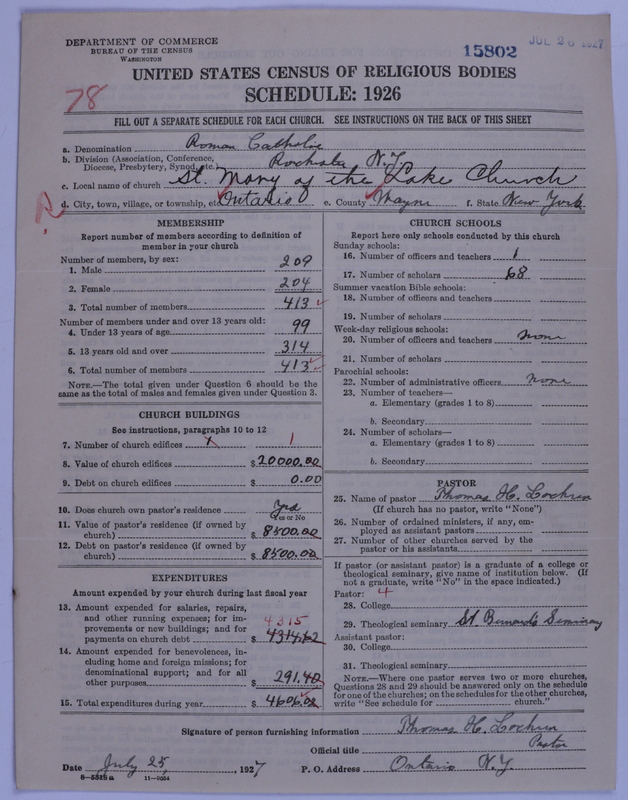 DEPARTMENT OF COMMERCE
BUREAU OF THE CENSUS
WASHINGTON
15802
JUL 26 1927
UNITED STATES CENSUS OF RELIGIOUS BODIES
78
SCHEDULE: 1926
FILL OUT A SEPARATE SCHEDULE FOR EACH CHURCH. SEE INSTRUCTIONS ON THE BACK OF THIS SHEET
a. Denomination Roman Catholic
b. Division (Association, Conference, Diocese, Presbytery, Synod, etc.) Rochester N.Y.
c. Local name of church St. Mary of the Lake Church
d. City, town, village, or township, etc. Ontario e. County Wayne f. State New York
MEMBERSHIP
Report number of members according to definition of
member in your church
Number of members, by sex:
1. Male 209
2. Female 204
3. Total number of members 413
Number of members under and over 13 years old:
4. Under 13 years of age 99
5. 13 years old and over 314
6. Total number of members 413
NOTE.—The total given under Question 6 should be the
same as the total of males and females given under Question 3.
CHURCH BUILDINGS
See instructions, paragraphs 10 to 12
7. Number of church edifices 1
8. Value of church edifices $ 20000.00
9. Debt on church edifices $ 0.00
10. Does church own pastor's residence Yes
Yes or No
11. Value of pastor's residence (if owned by
church) $ 8500.00
12. Debt on pastor's residence (if owned by
church) $ 8500.00
EXPENDITURES
Amount expended by your church during last fiscal year
13. Amount expended for salaries, repairs,
and other running expenses; for im-
provements or new buildings; and for
payments on church debt $ 4314.62
4315
14. Amount expended for benevolences, in-
cluding home and foreign missions; for
denominational support; and for all
other purposes $ 291.40
15. Total expenditures during year $ 4606.02
CHURCH SCHOOLS
Report here only schools conducted by this church
Sunday schools:
16. Number of officers and teachers 1
17. Number of scholars 68
Summer vacation Bible schools:
18. Number of officers and teachers
19. Number of scholars
Week-day religious schools:
20. Number of officers and teachers none
21. Number of scholars
Parochial schools:
22. Number of administrative officers none
23. Number of teachers—
a. Elementary (grades 1 to 8)
b. Secondary
24. Number of scholars—
a. Elementary (grades 1 to 8)
b. Secondary
PASTOR
25. Name of pastor Thomas H.
(If church has no pastor, write "None")
26. Number of ordained ministers, if any, em-
ployed as assistant pastors
27. Number of other churches served by the
pastor or his assistants
If pastor (or assistant pastor) is a graduate of a college or
theological seminary, give name of institution below. (If
not a graduate, write "No" in the space indicated.)
Pastor: 4
28. College
29. Theological seminary St. Bernard's Seminary
Assistant pastor:
30. College
31. Theological seminary
NOTE.—Where one pastor serves two or more churches,
Questions 28 and 29 should be answered only on the schedule
for one of the churches; on the schedules for the other churches,
write "See schedule for church.)
Signature of person furnishing information Thomas H.
Official title Pastor
Date July 25, 1927 P. O. Address Ontario N.Y.
8—5518a 11—9054